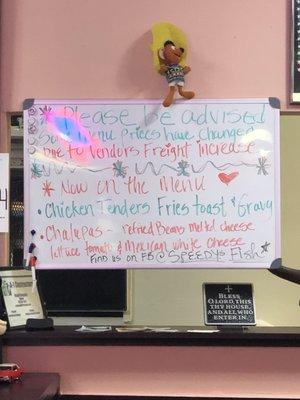 Please Be advised
Some Menu Prices have Changed
Due to Vendors Freight increase
Now on the Menu
• Chicken Tenders Fries toast & Gravy
• Chalupas - refined Beans melted cheese
lettuce tomato & Mexican white cheese
Find us on FB@ SPEEDYS Fish
BLESS,
O LORD, THIS
THY HOUSE
AND ALL WHO
ENTER IN.